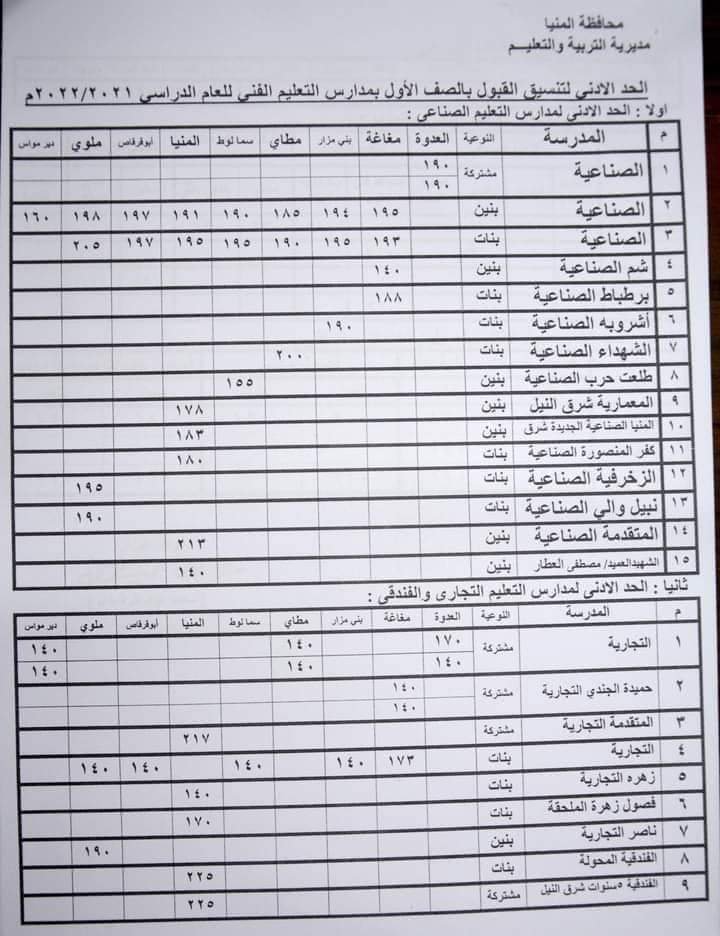 محافظة المنيا
مديرية التربية والتعليم
الحد الادنى لتنسيق القبول بالصف الأول بمدارس التعليم الفنى للعام الدراسى ٢٠٢٢/٢٠٢١م
اولا : الحد الادنى لمدارس التعليم الصناعى :
م المدرسة النوعية العدوة مغاغة بني مزار مطاي سما لوط المنيا أبوقرقاص ملوي دير مواس
١ الصناعية مشتركة ١٩٠
١٩٠
٢ الصناعية بنين ١٩٥ ١٩٤ ١٨٥ ١٩٠ ١٩١ ١٩٧ ١٩٨ ١٦٠
٣ الصناعية بنات ١٩٣ ١٩٥ ١٩٠ ١٩٥ ١٩٥ ١٩٧ ٢٠٥
٤ شم الصناعية بنين ١٤٠
٥ برطباط الصناعية بنات ١٨٨
٦ أشروبه الصناعية بنات ١٩٠
٧ الشهداء الصناعية بنات ٢٠٠
٨ طلعت حرب الصناعية بنين ١٥٥
٩ المعمارية شرق النيل بنين ١٧٨
١٠ المنيا الصناعية الجديدة شرق بنين ١٨٣
١١ كفر المنصورة الصناعية بنات ١٨٠
١٢ الزخرفية الصناعية بنات ١٩٥
١٣ نبيل والي الصناعية بنات ١٩٠
١٤ المتقدمة الصناعية بنين ٢١٣
١٥ الشهيدالعميد/ مصطفى العطار بنين ١٤٠
ثانيا : الحد الادنى لمدارس التعليم التجارى والفندقى :
م المدرسة النوعية العدوة مغاغة بني مزار مطاي سما لوط المنيا أبوقرقاص ملوي دير مواس
١ التجارية مشتركة ١٧٠ ١٤٠ ١٤٠
١٤٠ ١٤٠ ١٤٠
٢ حميدة الجندي التجارية مشتركة ١٤٠
١٤٠
٣ المتقدمة التجارية مشتركة ٢١٧
٤ التجارية بنات ١٧٣ ١٤٠ ١٤٠ ١٤٠ ١٤٠
٥ زهره التجارية بنات ١٤٠
٦ فصول زهرة الملحقة بنات ١٧٠
٧ ناصر التجارية بنين ١٩٠
٨ الفندقية المحولة بنات ٢٢٥
٩ الفندقية ٥سنوات شرق النيل مشتركة ٢٢٥